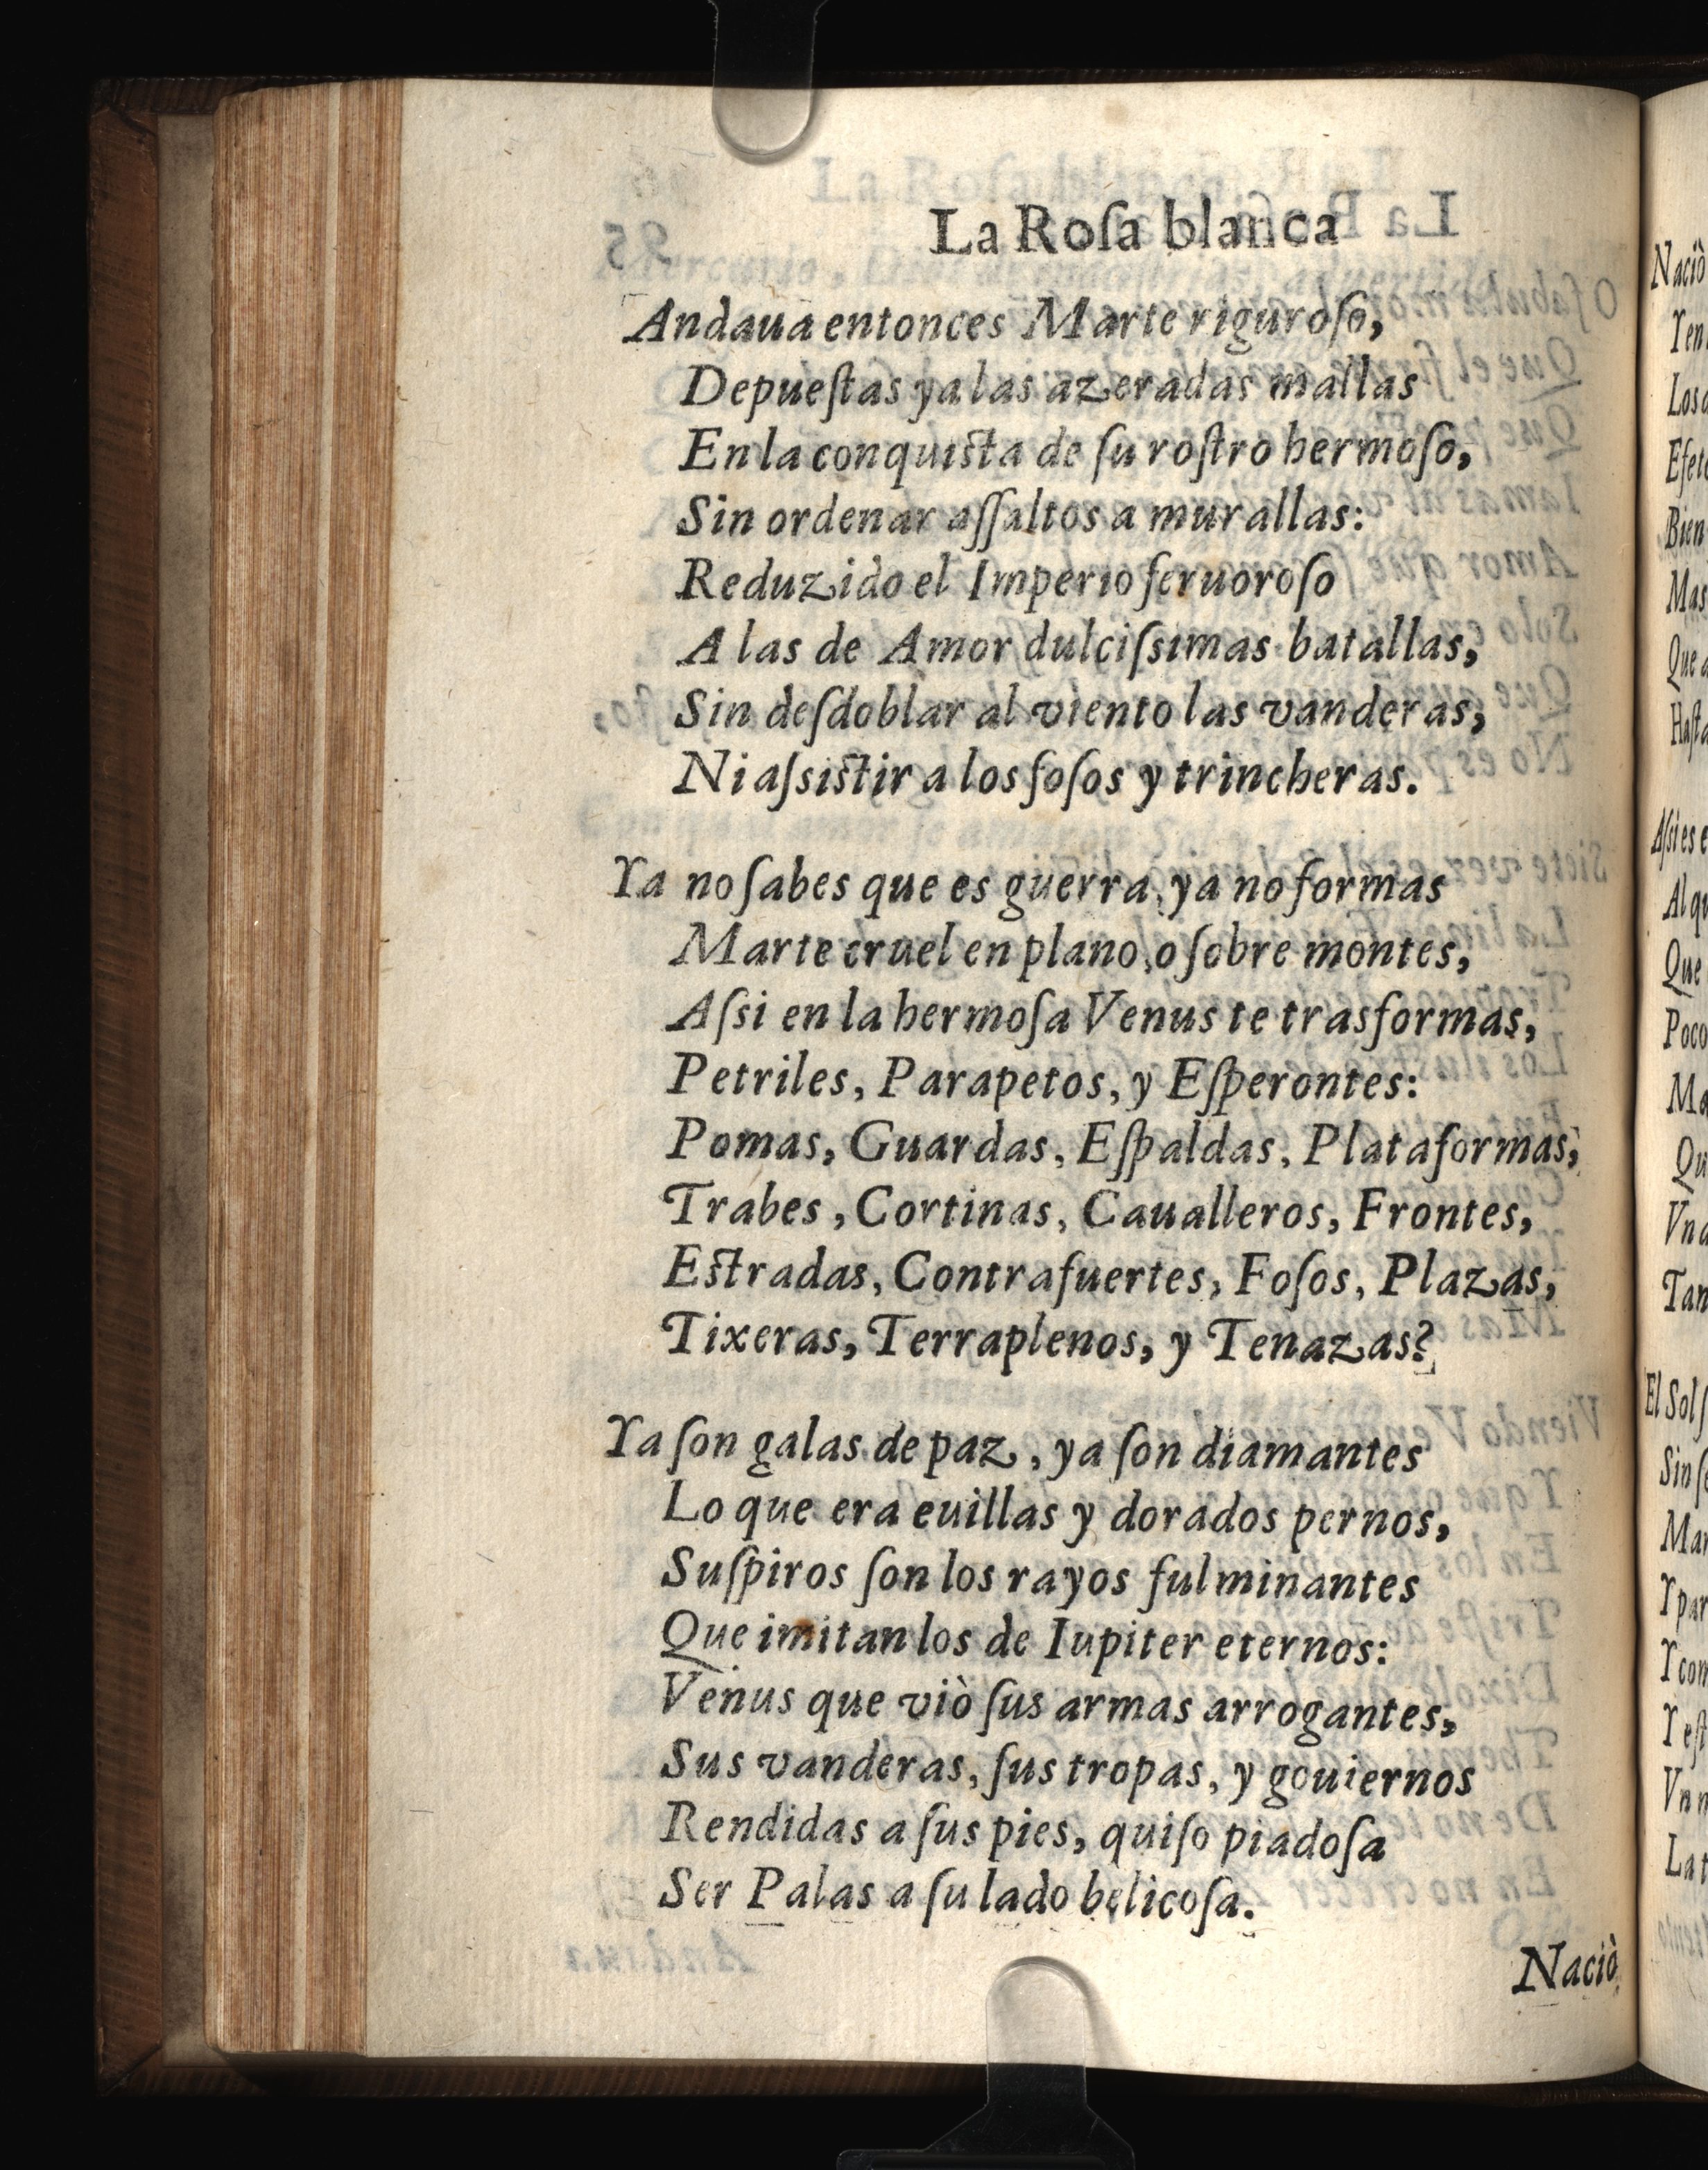 La Roſa blanca
Andaua entonces Marte riguroſo,
Depueſtas ya las azeradas mallas
En la conquiſta de ſu roſtro hermoſo,
Sin ordenar aſſaltos a murallas:
Reduzido el Imperio feruoroſo
A las de Amor dulciſsimas batallas,
Sin deſdoblar al viento las vanderas,
Ni aſsiſtir a los foſos y trincheras.
Ya no ſabes que es guerra, ya no formas
Marte cruel en plano, o ſobre montes,
Aſsi en la hermoſa Venus te trasformas,
Petriles, Parapetos, y Eſperontes:
Pomas, Guardas, Eſpaldas, Plataformas,
Trabes, Cortinas, Caualleros, Frontes,
Eſtradas, Contrafuertes, Foſos, Plazas,
Tixeras, Terraplenos, y Tenazas?
Ya ſon galas de paz, ya ſon diamantes
Lo que era euillas y dorados pernos,
Suſpiros ſon los rayos fulminantes
Que imitan los de Iupiter eternos:
Venus que viò ſus armas arrogantes,
Sus vanderas, ſus tropas, y gouiernos
Rendidas a ſus pies, quiſo piadoſa
Ser Palas a ſu lado belicoſa.
Naciò
Naciò
Los
Bien
Mas
Que
Poco
El Sol